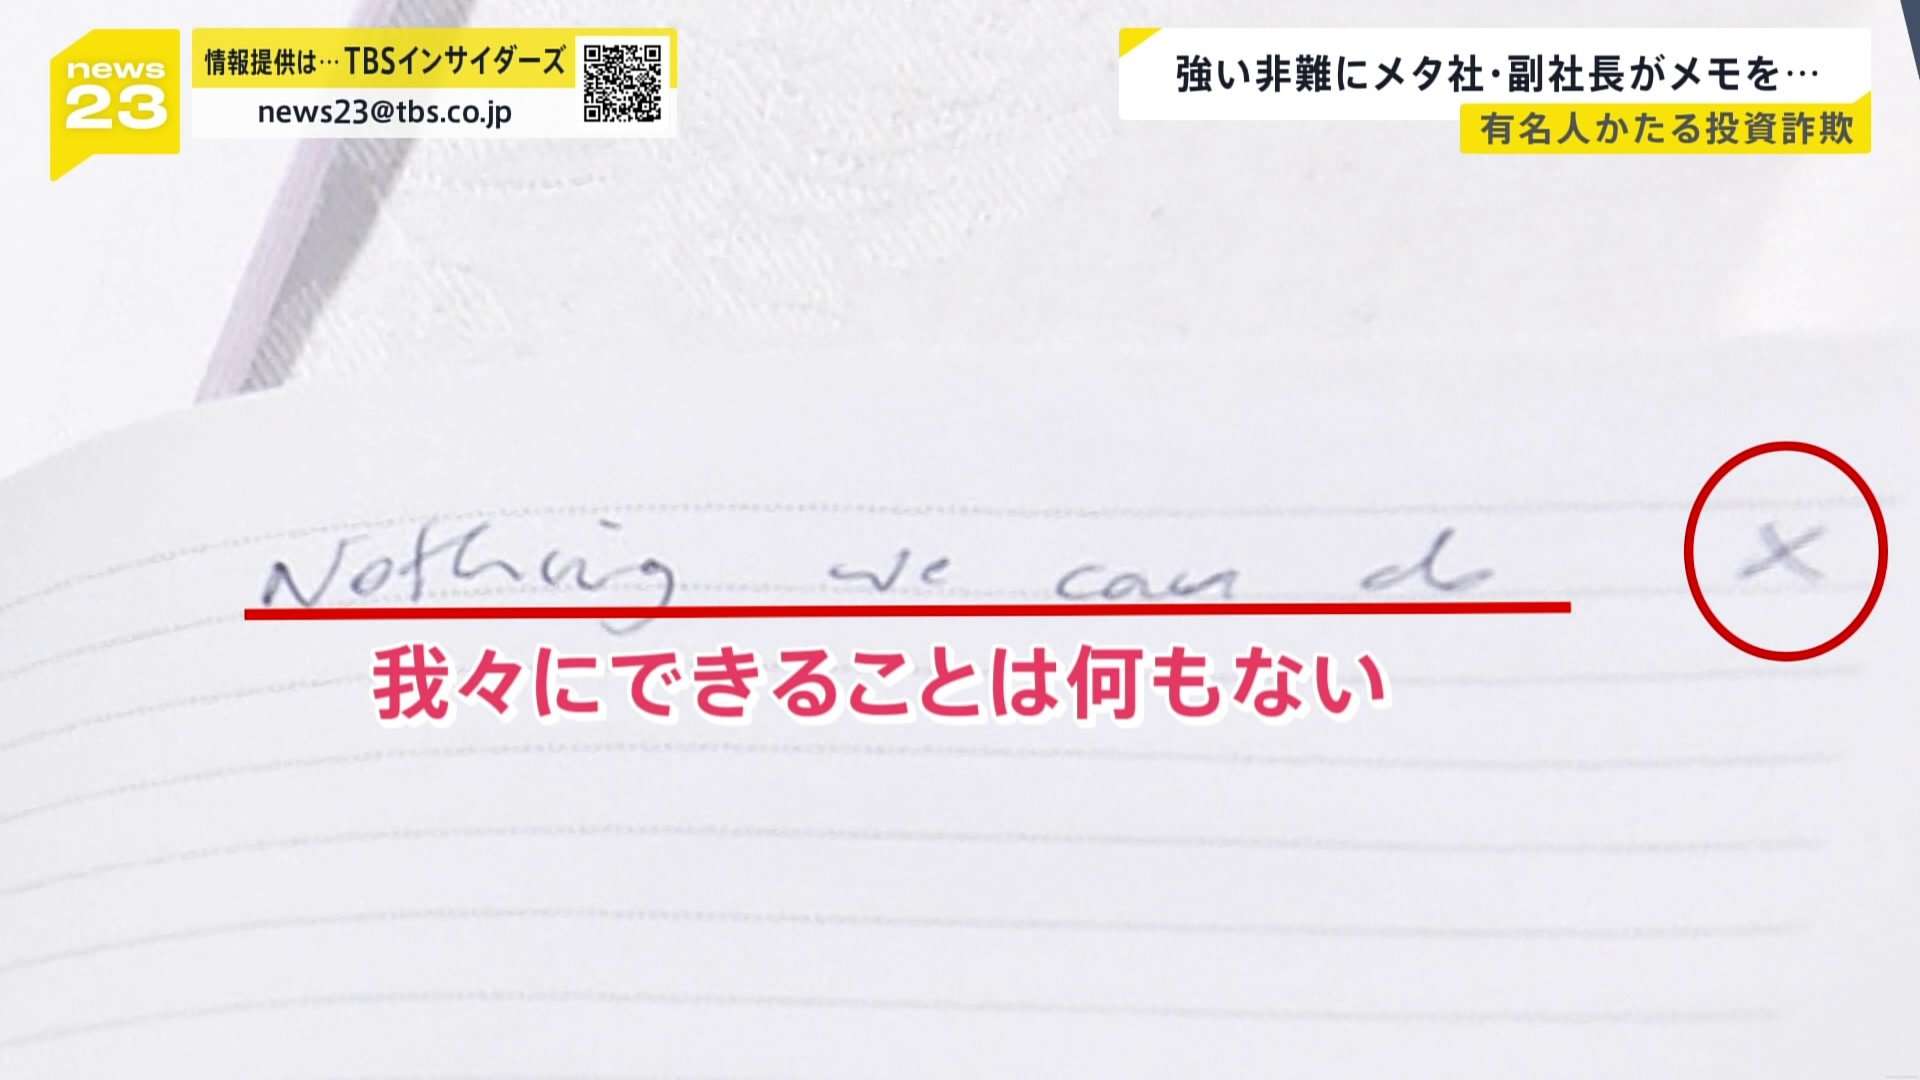 news
23
情報提供は…TBSインサイダーズ
news23@tbs.co.jp
強い非難にメタ社・副社長がメモを…
有名人かたる投資詐欺
Nothing we can do ×
我々にできることは何もない